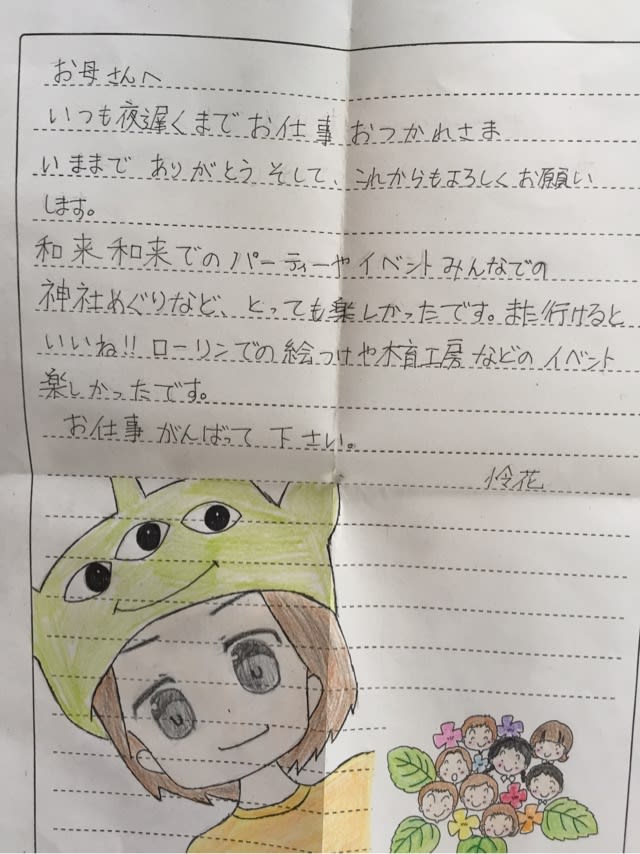 お母さんへ
いつも夜遅くまでお仕事 おつかれさま
いままで ありがとう そして、これからもよろしくお願い
します。
和来和来でのパーティーやイベントみんなでの
神社めぐりなど、とっても楽しかったです。また行けると
いいね!! ローリンでの絵つけや木育工房などのイベント
楽しかったです。
お仕事がんばって下さい。
怜花